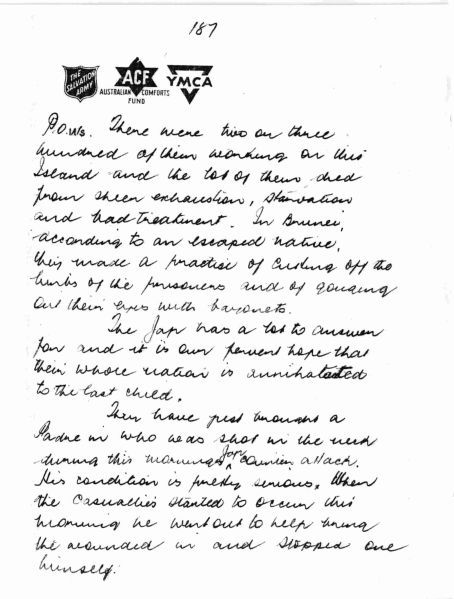 187
THE SALVATION ARMY
ACF
AUSTRALIAN COMFORTS FUND
YMCA
P.O.Ws. There were two or three
hundred of them working on this
Island and the lot of them died
from sheer exhaustion, starvation
and bad treatment. In Brunei,
according to an escaped native,
they made a practise of cutting off the
limbs of the prisoners and of gouging
out their eyes with bayonets.
The Jap has a lot to answer
for and it is our fervent hope that
their whole nation is annihilated
to the last child.
They have just brought a
Padre in who was shot in the neck
during this mornings Jap attack.
His condition is pretty serious. When
the casualties started to occur this
morning he went out to help bring
the wounded in and stopped one
himself.